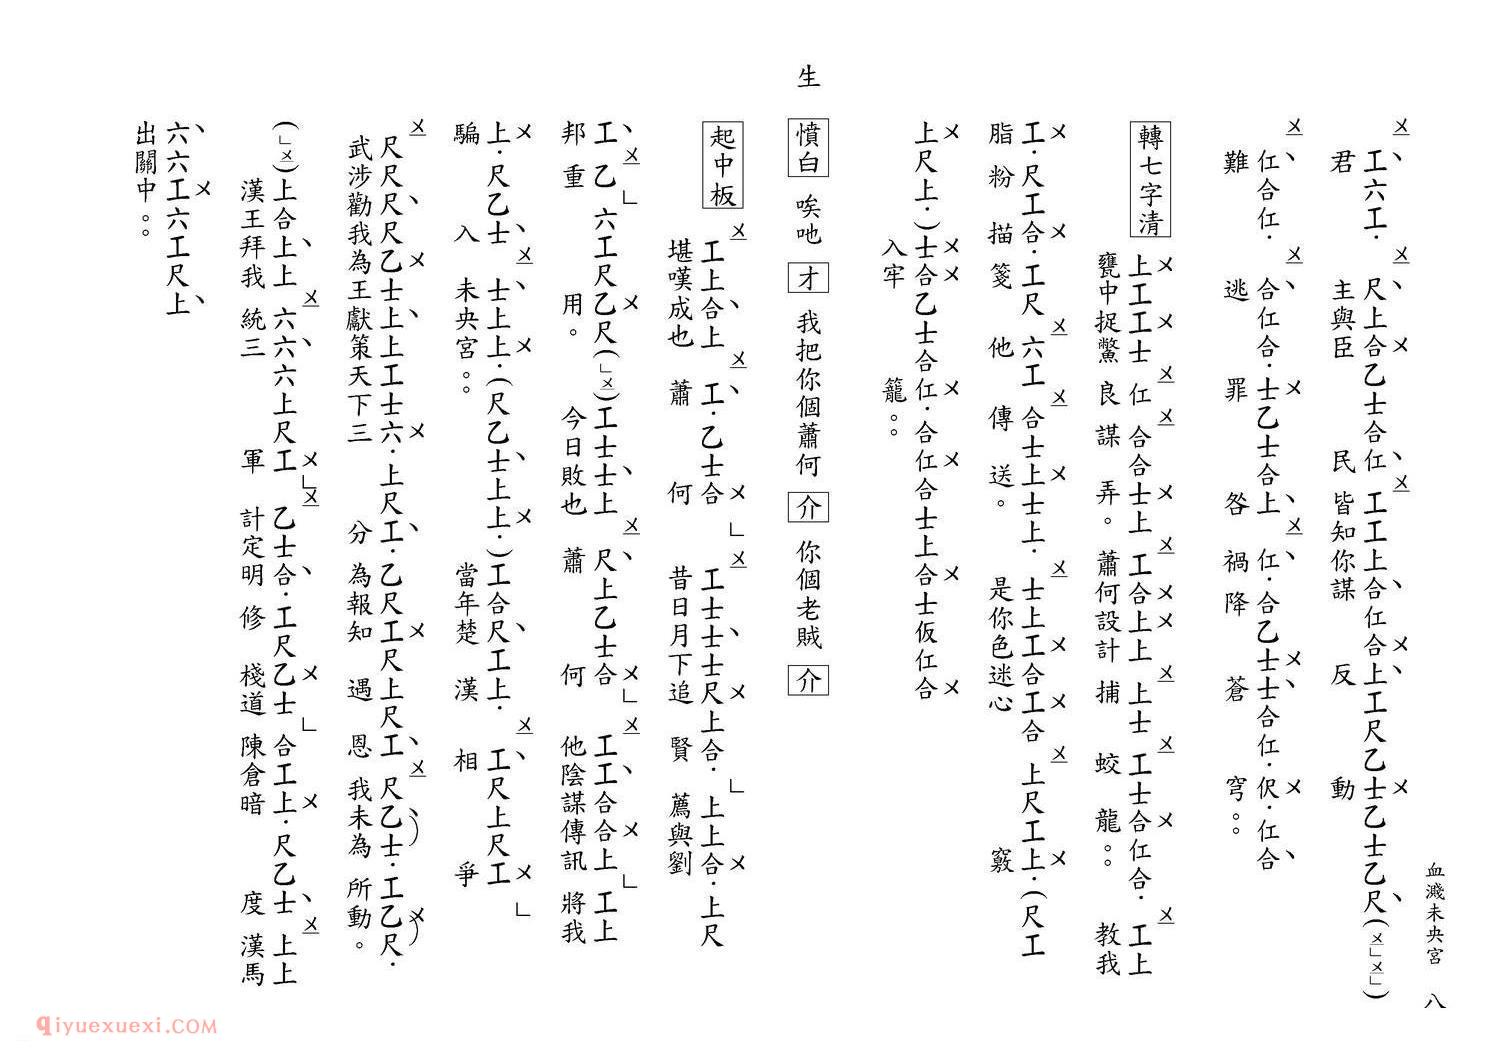 血濺未央宮　八
工六工．尺上合乙士合仜工工上合仜合上工尺乙士乙士乙尺(ㄨㄴㄨㄴ)
君主與臣民皆知你謀反動
仜合仜．合仜合．士乙士合上仜．合乙士士合仜．伬．仜合
難逃罪咎禍降蒼穹。。
轉七字清
上工工士仜合合士上工合上上上士工士合仜合．工上
甕中捉鱉良謀弄。蕭何設計捕蛟龍。。教我
工．尺工合．工尺六工合士上士上．士上工合工合上尺工上．(尺工
脂粉描箋他傳送。是你色迷心竅
上尺上．)士合乙士合仜．合仜合士上合士仮仜合
入牢籠。。
生　憤白　唉吔　才　我把你個蕭何　介　你個老賊　介
起中板
工上合上工．乙士合工士士士尺上合．上上合．上尺
堪嘆成也蕭何昔日月下追賢薦與劉
工乙六工尺乙尺(ㄴㄨ)工士士上尺上乙士合工工合合上工上
邦重用。今日敗也蕭何他陰謀傳訊將我
上．尺乙士士上上．(尺乙士上上．)工合尺工上．工尺上尺工
騙入未央宮。。當年楚漢相爭
尺尺尺尺乙士上上工士六．上尺工．乙尺工尺上尺工尺乙士．工乙尺．
武涉勸我為王獻策天下三分為報知遇恩我未為所動。
(ㄴㄨ)上合上上六六六上尺工乙士合．工尺乙士合工上．尺乙士上上
漢王拜我統三軍計定明修棧道陳倉暗度漢馬
六六工六工尺上
出關中。。
qiyuexuexi.COM